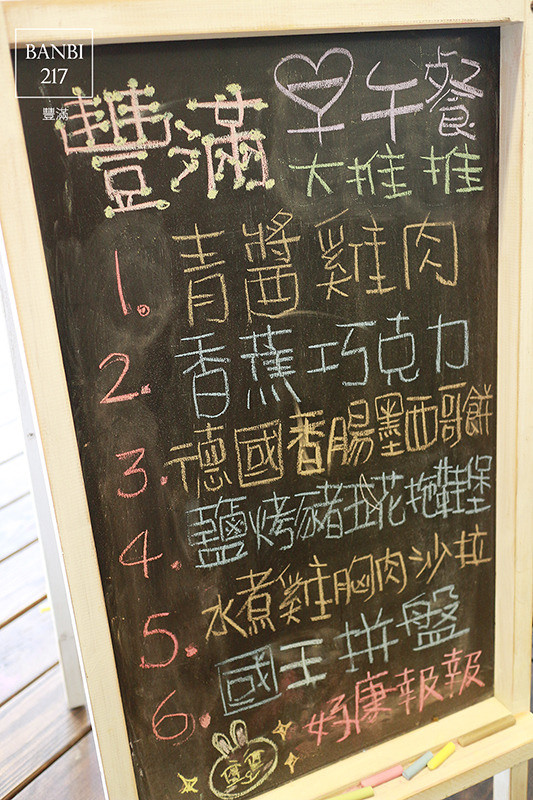 BANBI
217
豐滿
豐滿 早午餐
大推推
1. 青醬雞肉
2. 香蕉巧克力
3. 德國香腸墨西哥餅
4. 鹽烤豬五花拖鞋堡
5. 水煮雞胸肉沙拉
6. 國王拼盤
好康報報